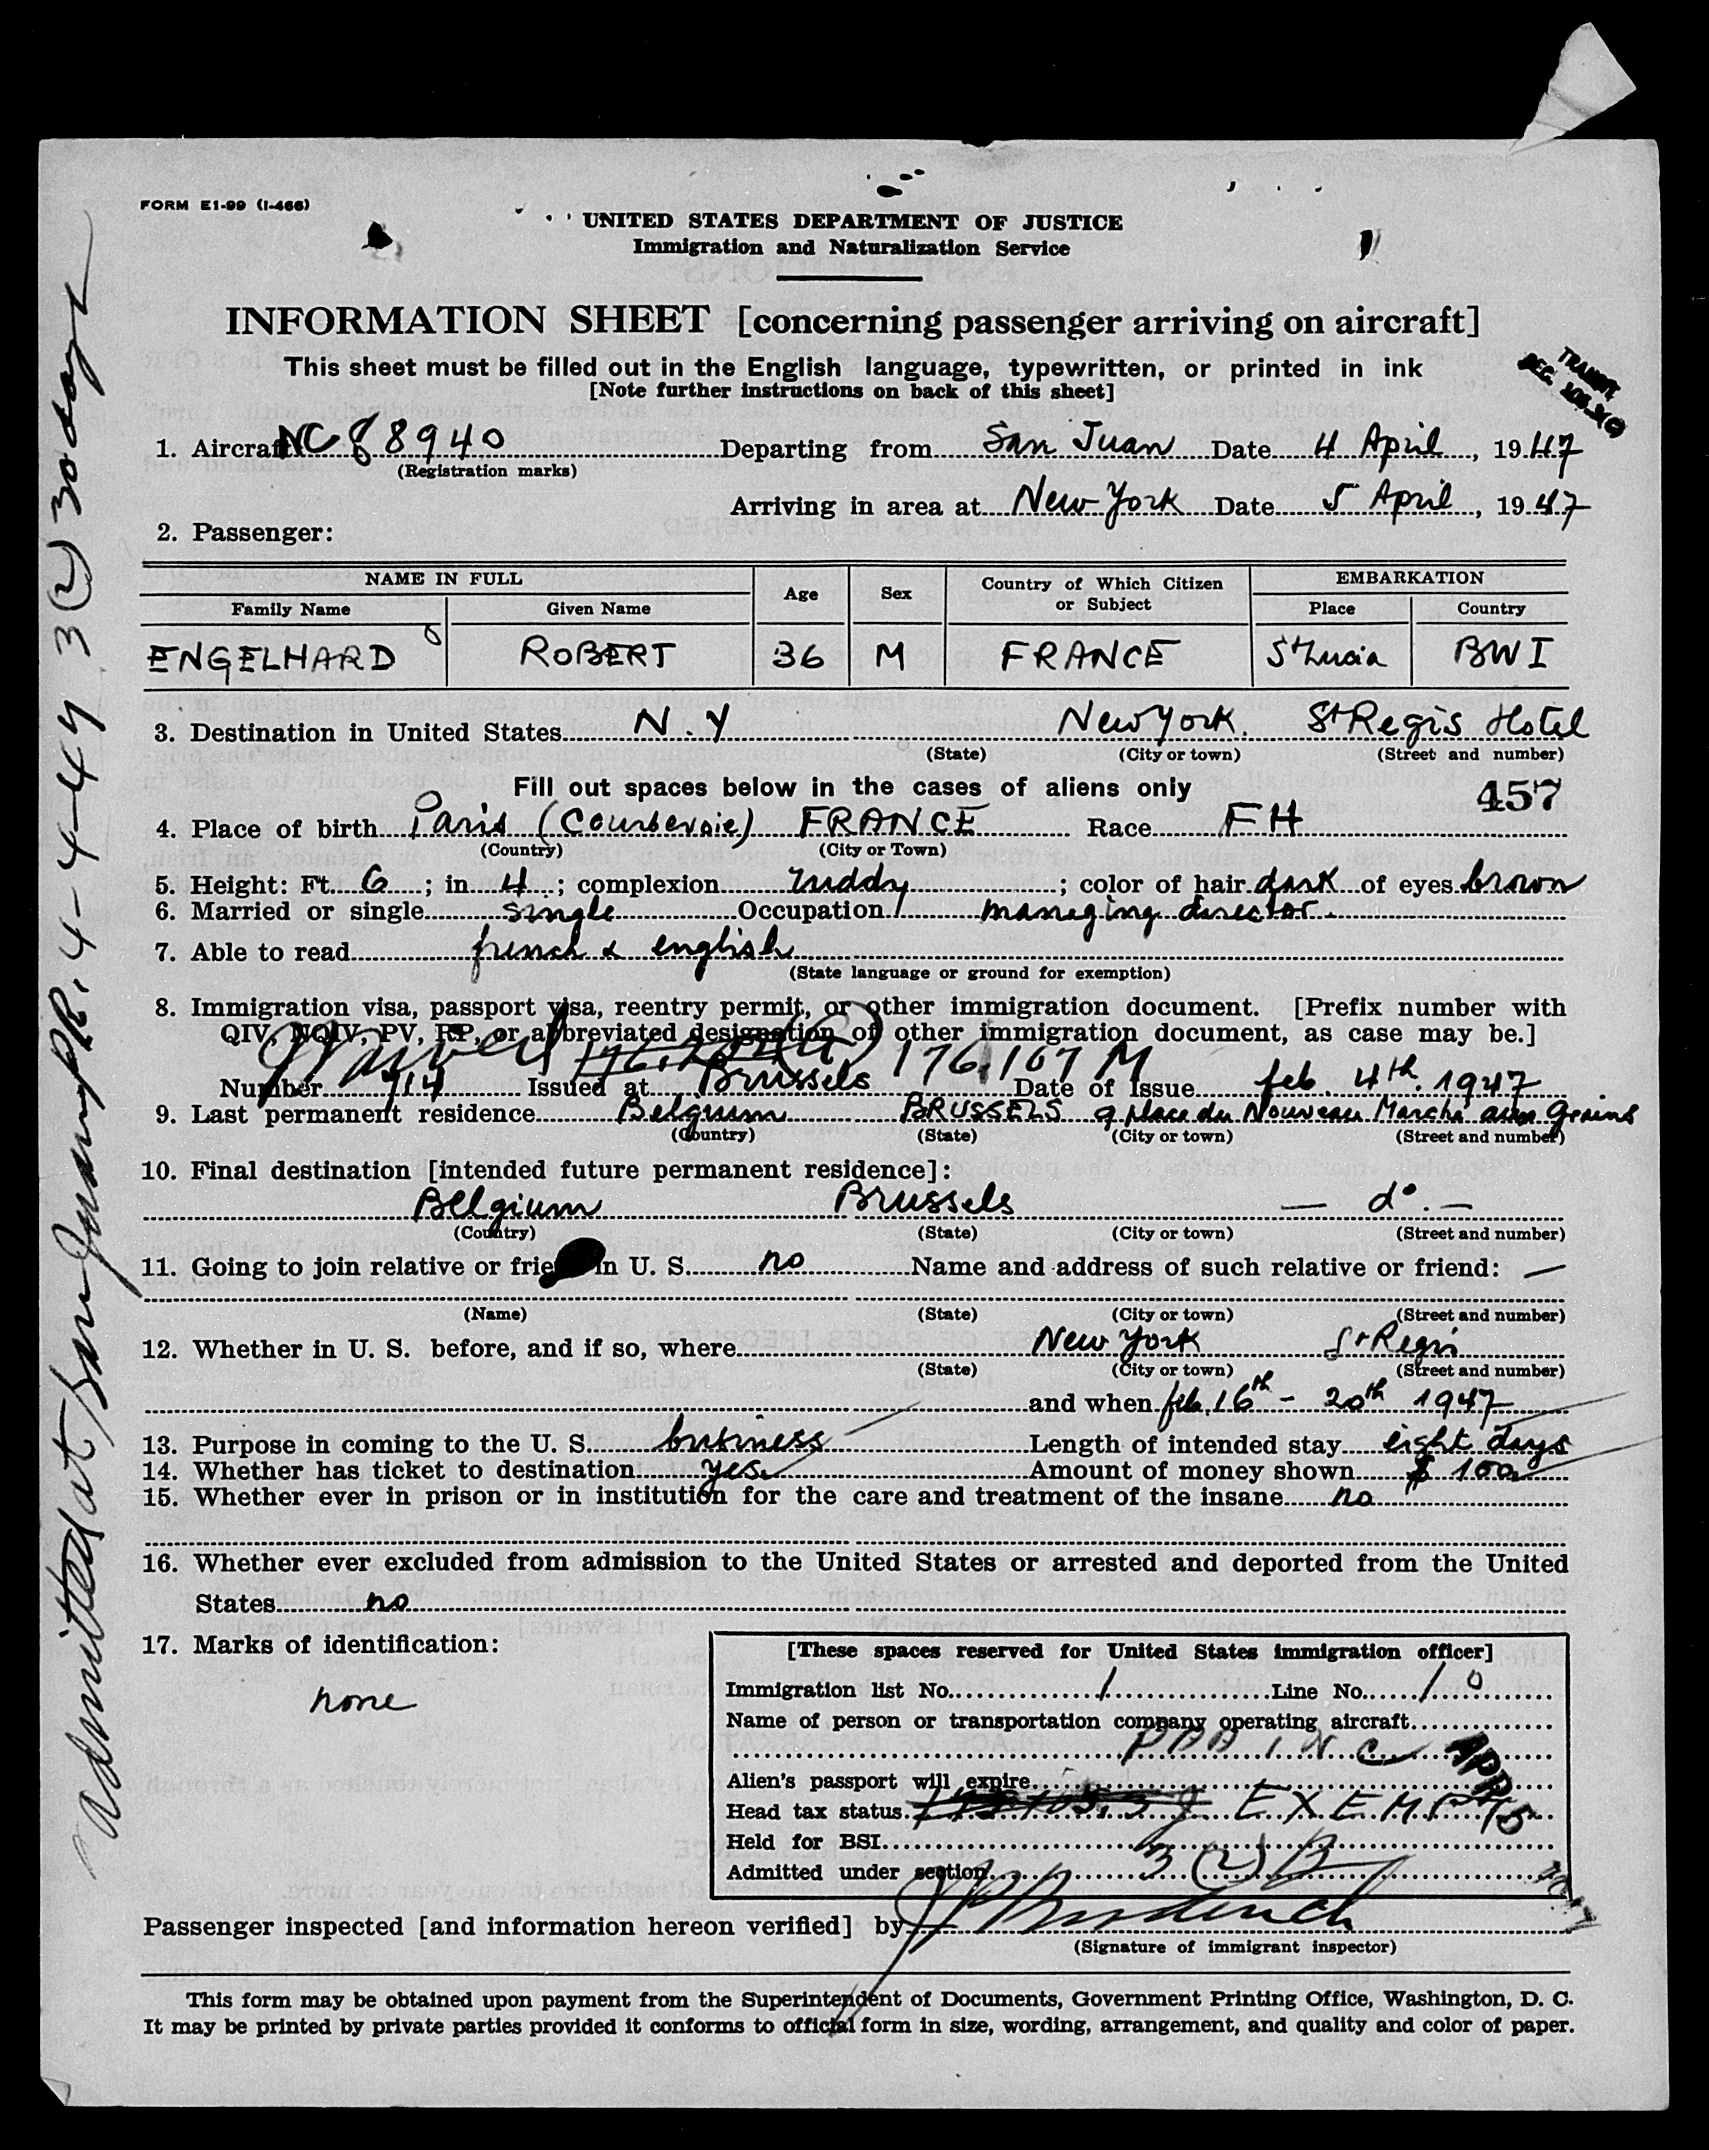 FORM E1-99 (I-466)
UNITED STATES DEPARTMENT OF JUSTICE
Immigration and Naturalization Service
INFORMATION SHEET [concerning passenger arriving on aircraft]
This sheet must be filled out in the English language, typewritten, or printed in ink
[Note further instructions on back of this sheet]
TRANSIT
1. Aircraft NC 88940 Departing from San Juan Date 4 April, 1947
(Registration marks)
Arriving in area at New York Date 5 April, 1947
2. Passenger:
NAME IN FULL Age Sex Country of Which Citizen or Subject EMBARKATION
Family Name Given Name Place Country
ENGELHARD ROBERT 36 M FRANCE St Lucia BWI
3. Destination in United States N.Y New York. St Regis Hotel
(State) (City or town) (Street and number)
Fill out spaces below in the cases of aliens only 457
4. Place of birth Paris (Courbevoie) FRANCE Race FH
(Country) (City or Town)
5. Height: Ft. 6; in. 4; complexion ruddy; color of hair dark of eyes brown
6. Married or single single Occupation managing director.
7. Able to read french & english
(State language or ground for exemption)
8. Immigration visa, passport visa, reentry permit, or other immigration document. [Prefix number with
QIV, NQIV, PV, RP, or abbreviated designation of other immigration document, as case may be.]
Waived 176.107 M
Number 714 Issued at Brussels Date of Issue feb. 4th. 1947
9. Last permanent residence Belgium BRUSSELS 9 place du Nouveau Marché aux Grains
(Country) (State) (City or town) (Street and number)
10. Final destination [intended future permanent residence]:
Belgium Brussels — do. —
(Country) (State) (City or town) (Street and number)
11. Going to join relative or friend in U. S. no Name and address of such relative or friend: —
(Name) (State) (City or town) (Street and number)
12. Whether in U. S. before, and if so, where New York St Regis
(State) (City or town) (Street and number)
and when feb. 16th - 20th 1947
13. Purpose in coming to the U. S. business Length of intended stay eight days
14. Whether has ticket to destination yes Amount of money shown $ 100
15. Whether ever in prison or in institution for the care and treatment of the insane no
16. Whether ever excluded from admission to the United States or arrested and deported from the United
States no
17. Marks of identification:
none
[These spaces reserved for United States immigration officer]
Immigration list No. 1 Line No. 10
Name of person or transportation company operating aircraft
PAA INC
Alien's passport will expire
Head tax status EXEMPT
APR 5
Held for BSI
Admitted under section 3(2)B
Passenger inspected [and information hereon verified] by
(Signature of immigrant inspector)
This form may be obtained upon payment from the Superintendent of Documents, Government Printing Office, Washington, D. C.
It may be printed by private parties provided it conforms to official form in size, wording, arrangement, and quality and color of paper.
Admitted at San Juan PR. 4-4-47 3(2) 30 days